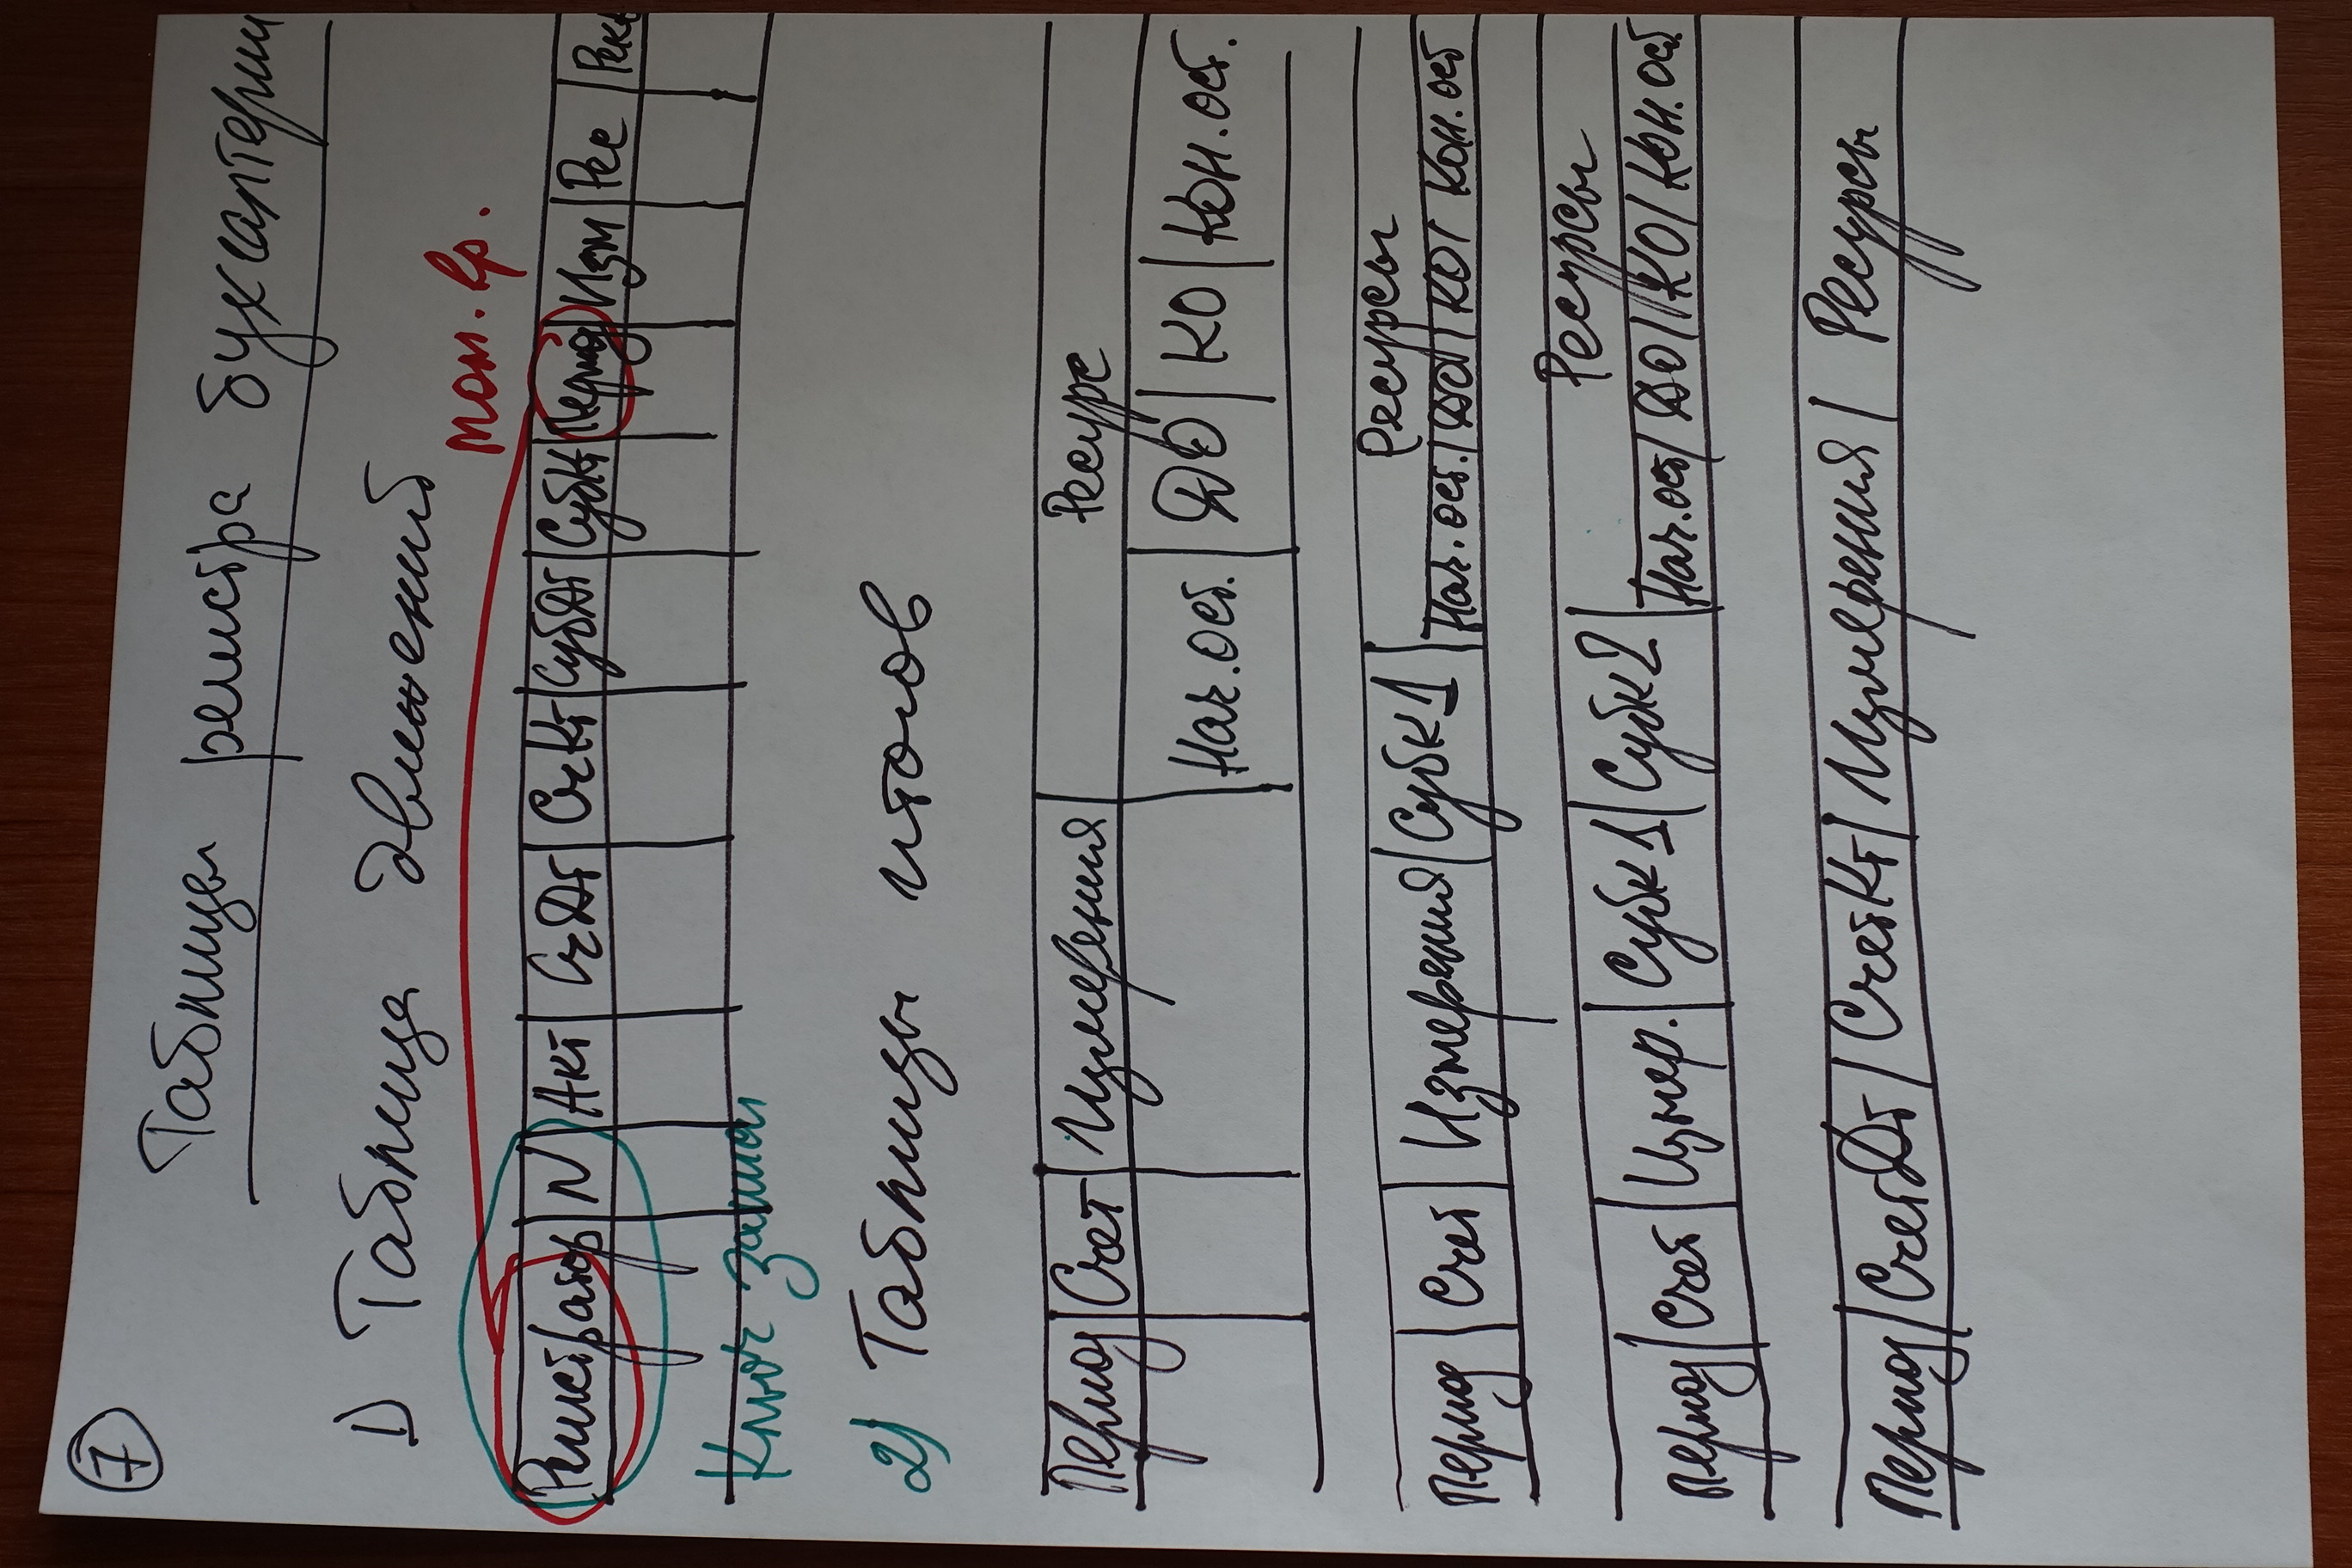 7
Таблицы регистра бухгалтерии
1) Таблица движений
мом. вр.
Регистратор N Акт СчДт СчКт СубДт СубКт Период Изм Рес Рекв
Ключ записи
2) Таблицы итогов
Период Счет Измерения Ресурс
Нач.ост. ДО КО Кон.ост.
Ресурсы
Период Счет Измерения Субк1 Нач.ост. ДО КО Кон.ост
Ресурсы
Период Счет Измер. Субк1 Субк2 Нач.ост ДО КО Кон.ост.
Период СчетДт СчетКт Измерения Ресурсы